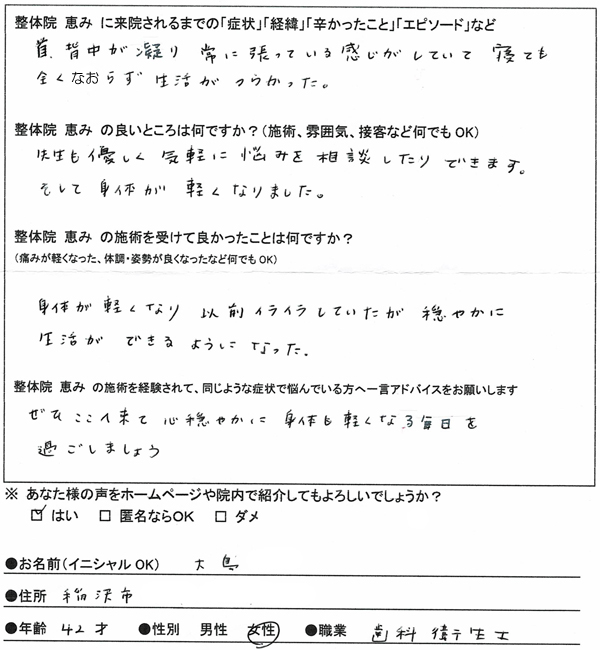 整体院 恵み に来院されるまでの「症状」「経緯」「辛かったこと」「エピソード」など
首、背中が凝り 常に張っている感じがしていて 寝ても
全くなおらず 生活が つらかった。
整体院 恵み の良いところは何ですか?(施術、雰囲気、接客など何でもOK)
先生も優しく 気軽に 悩みを 相談したり できます。
そして 身体が 軽くなりました。
整体院 恵み の施術を受けて良かったことは何ですか?
(痛みが軽くなった、体調・姿勢が良くなったなど何でもOK)
身体が 軽くなり 以前イライラしていたが 穏やかに
生活が できる ようになった.
整体院 恵み の施術を経験されて、同じような症状で悩んでいる方へ一言アドバイスをお願いします
ぜひ ここへ来て 心穏やかに 身体も軽くなる毎日を
過ごしましょう
※ あなた様の声をホームページや院内で紹介してもよろしいでしょうか?
☑ はい □ 匿名ならOK □ ダメ
●お名前(イニシャルOK) 大島
●住所 稲沢市
●年齢 42才 ●性別 男性 女性 ●職業 歯科衛生士